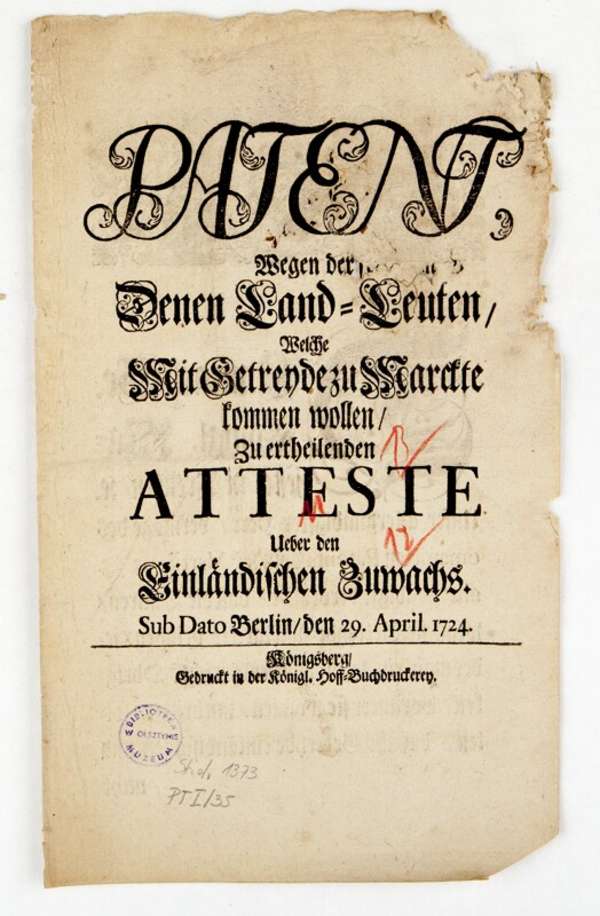 PATENT,
Wegen der
Denen Land-Leuten/
Welche
Mit Getreyde zu Marckte
kommen wollen/
Zu ertheilenden
ATTESTE
Ueber den
Einländischen Zuwachs.
Sub Dato Berlin/den 29. April. 1724.
Königsberg/
Gedruckt in der Königl. Hoff-Buchdruckerey.
BIBLIOTEKA
OLSZTYNIE
MUZEUM
1373
PTI/35
13
11
12